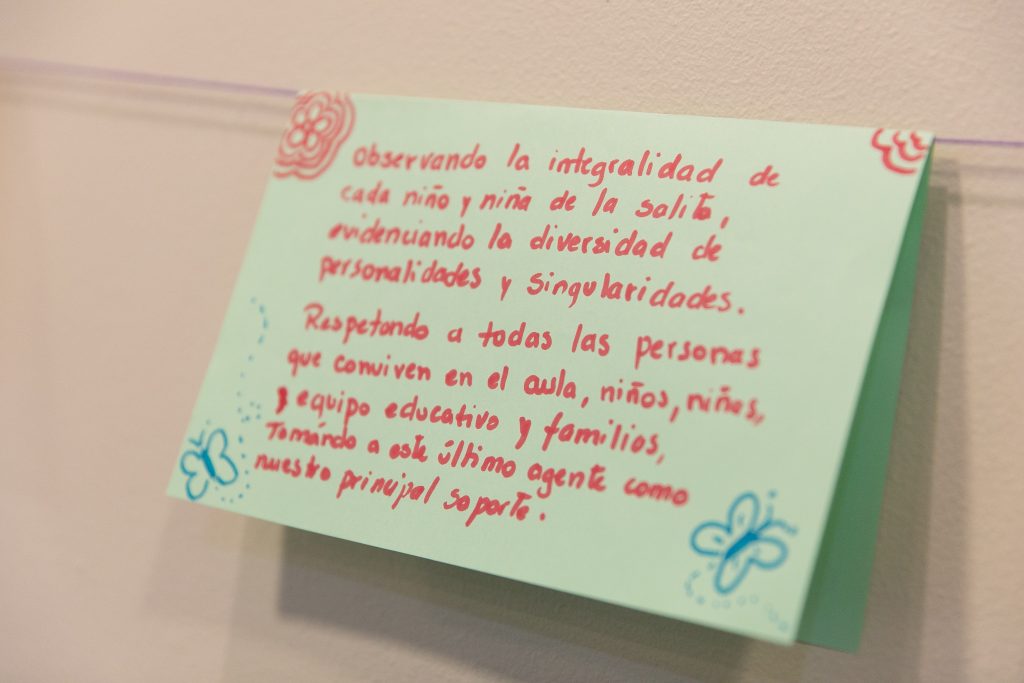 Observando la integralidad de
cada niño y niña de la salita,
evidenciando la diversidad de
personalidades y singularidades.
Respetando a todas las personas
que conviven en el aula, niños, niñas,
y equipo educativo y familias,
Tomándo a este último agente como
nuestro principal soporte.